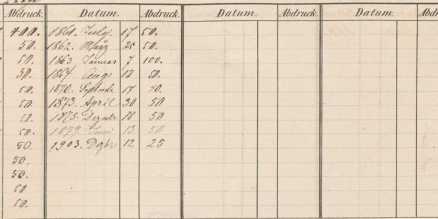 Abdruck. Datum. Abdruck. Datum. Abdruck. Datum. Abd
400. 1860. July 17 50.
50. 1862. März 28 50.
50. 1863 Januar 7 100.
50. 1867 Aug 12 50.
50. 1870. Septembr 17 50.
50. 1873. April 30 50
50. 1875. Dezember 18 50
50. 1879. Juni 13 50
50 1903. Dezbr 12 25
50.
50.
50
50.